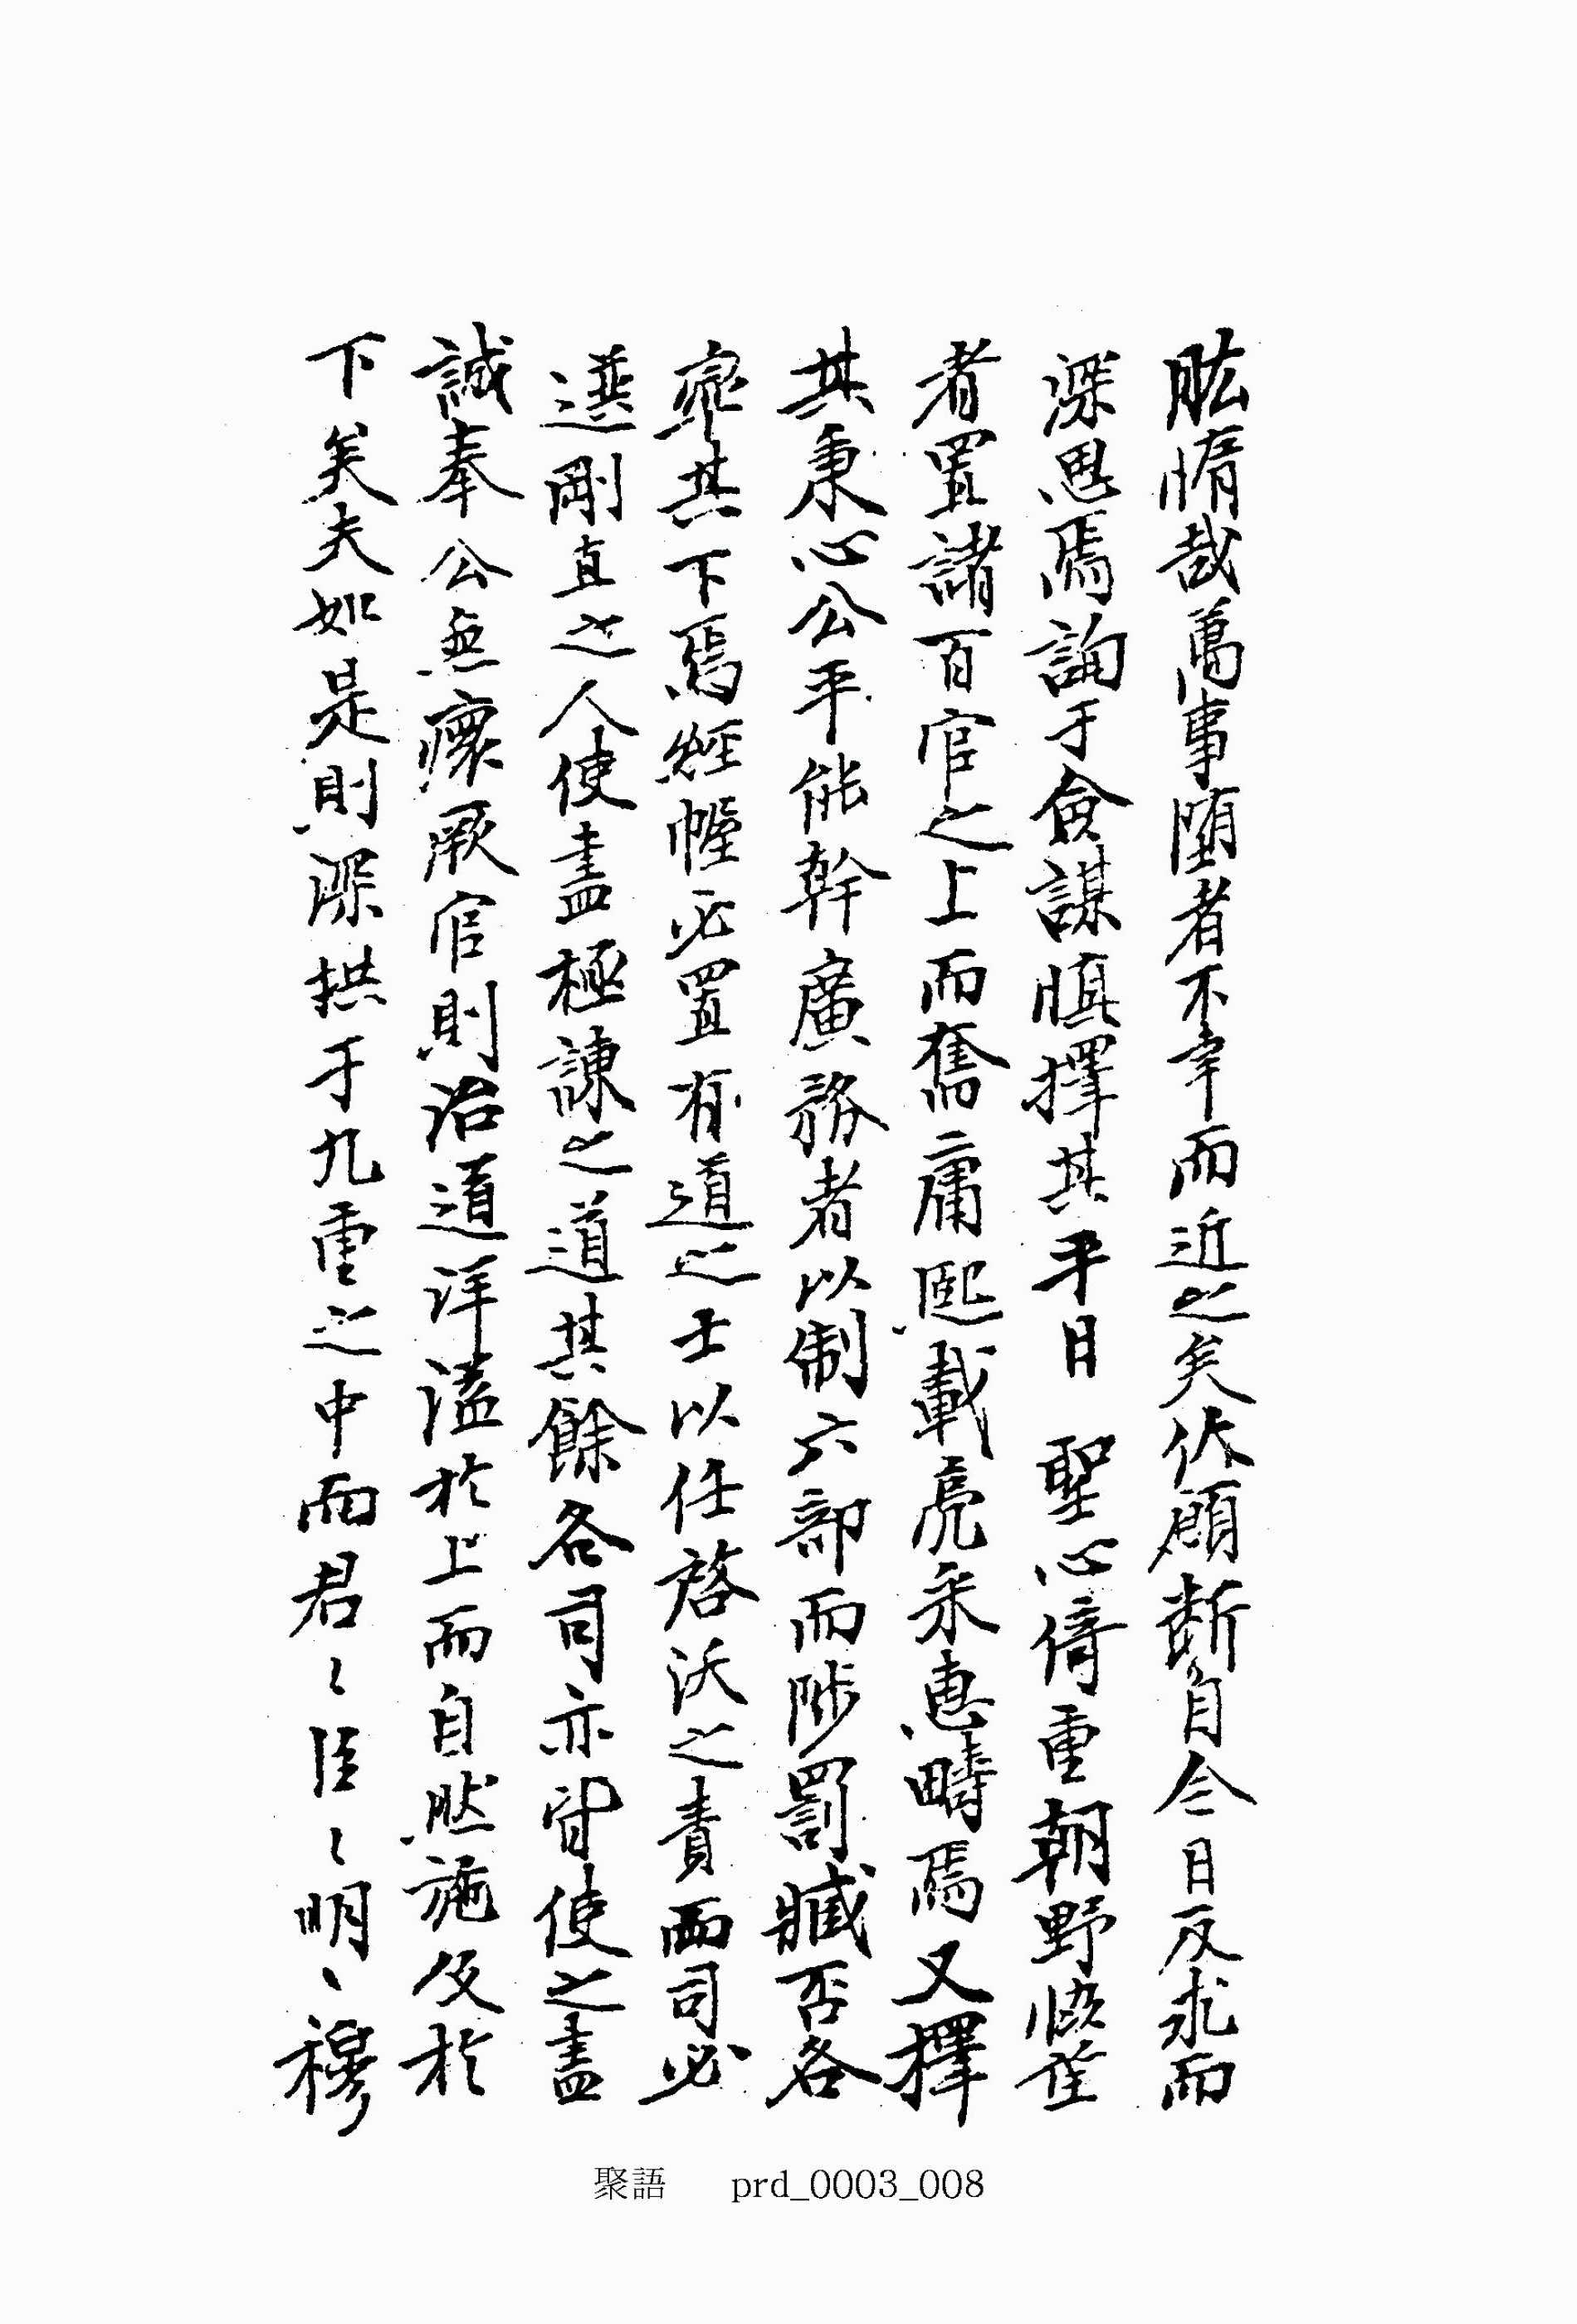 肱惰哉萬事墮者不幸而近之矣伏願斷自今日反求而
深思焉詢于僉謀愼擇其平日 聖心倚重朝野恢望
者置諸百官之上而奮庸熙載亮采惠疇焉又擇
其秉心公平能幹廣務者以制六部而陟罰臧否各
率其下焉經幄必置有道之士以任啓沃之責兩司必
選剛直之人使盡極諫之道其餘各司亦皆使之盡
誠奉公無瘝厥官則治道洋溢於上而自然施及於
下矣夫如是則深拱于九重之中而君〻臣〻明〻穆
聚語 prd_0003_008